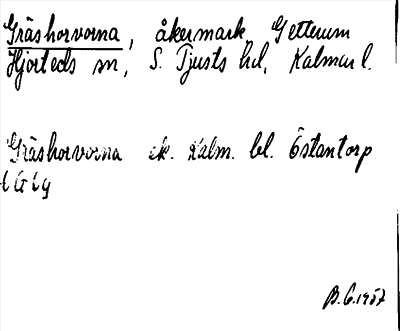 Gräshorvorna, åkermark, Getterum
Hjorteds sn, S. Tjusts hd, Kalmar l.
Gräshorvorna ek. Kalm. bl. Östantorp
B.G. 1957